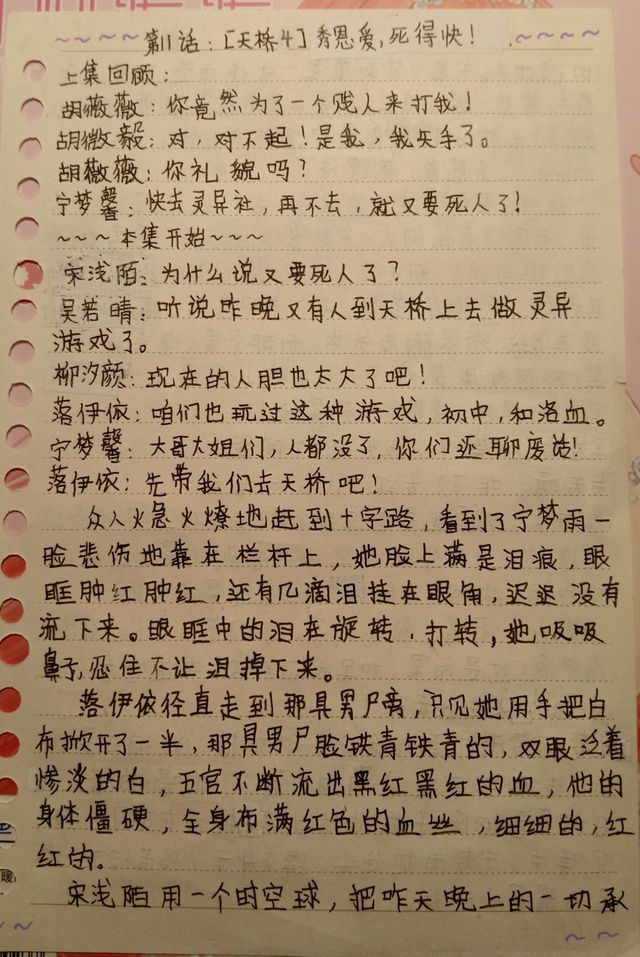 ~~~~~第11话:[天桥4]秀恩爱,死得快! ~~~~
上集回顾:
胡薇薇:你竟然为了一个贱人来打我!
胡微毅:对,对不起!是我,我失手了。
胡薇薇:你礼貌吗?
宁梦馨:快去灵异社,再不去,就又要死人了!
~~~本集开始~~~
宋浅陌:为什么说又要死人了?
吴若晴:听说昨晚又有人到天桥上去做灵异
游戏了。
柳汐颜:现在的人胆也太大了吧!
落伊依:咱们也玩过这种游戏,初中,和洛血。
宁梦馨:大哥大姐们,人都没了,你们还聊废话!
落伊依:先带我们去天桥吧!
众人火急火燎地赶到十字路,看到了宁梦雨一
脸悲伤地靠在栏杆上,她脸上满是泪痕,眼
眶肿红肿红,还有几滴泪挂在眼角,迟迟没有
流下来。眼眶中的泪在旋转,打转,她吸吸
鼻子,忍住不让泪掉下来。
落伊依径直走到那具男尸旁,只见她用手把白
布掀开了一半,那具男尸脸铁青铁青的,双眼泛着
惨淡的白,五官不断流出黑红黑红的血,他的
身体僵硬,全身布满红色的血丝,细细的,红
红的。
宋浅陌用一个时空球,把昨天晚上的一切承